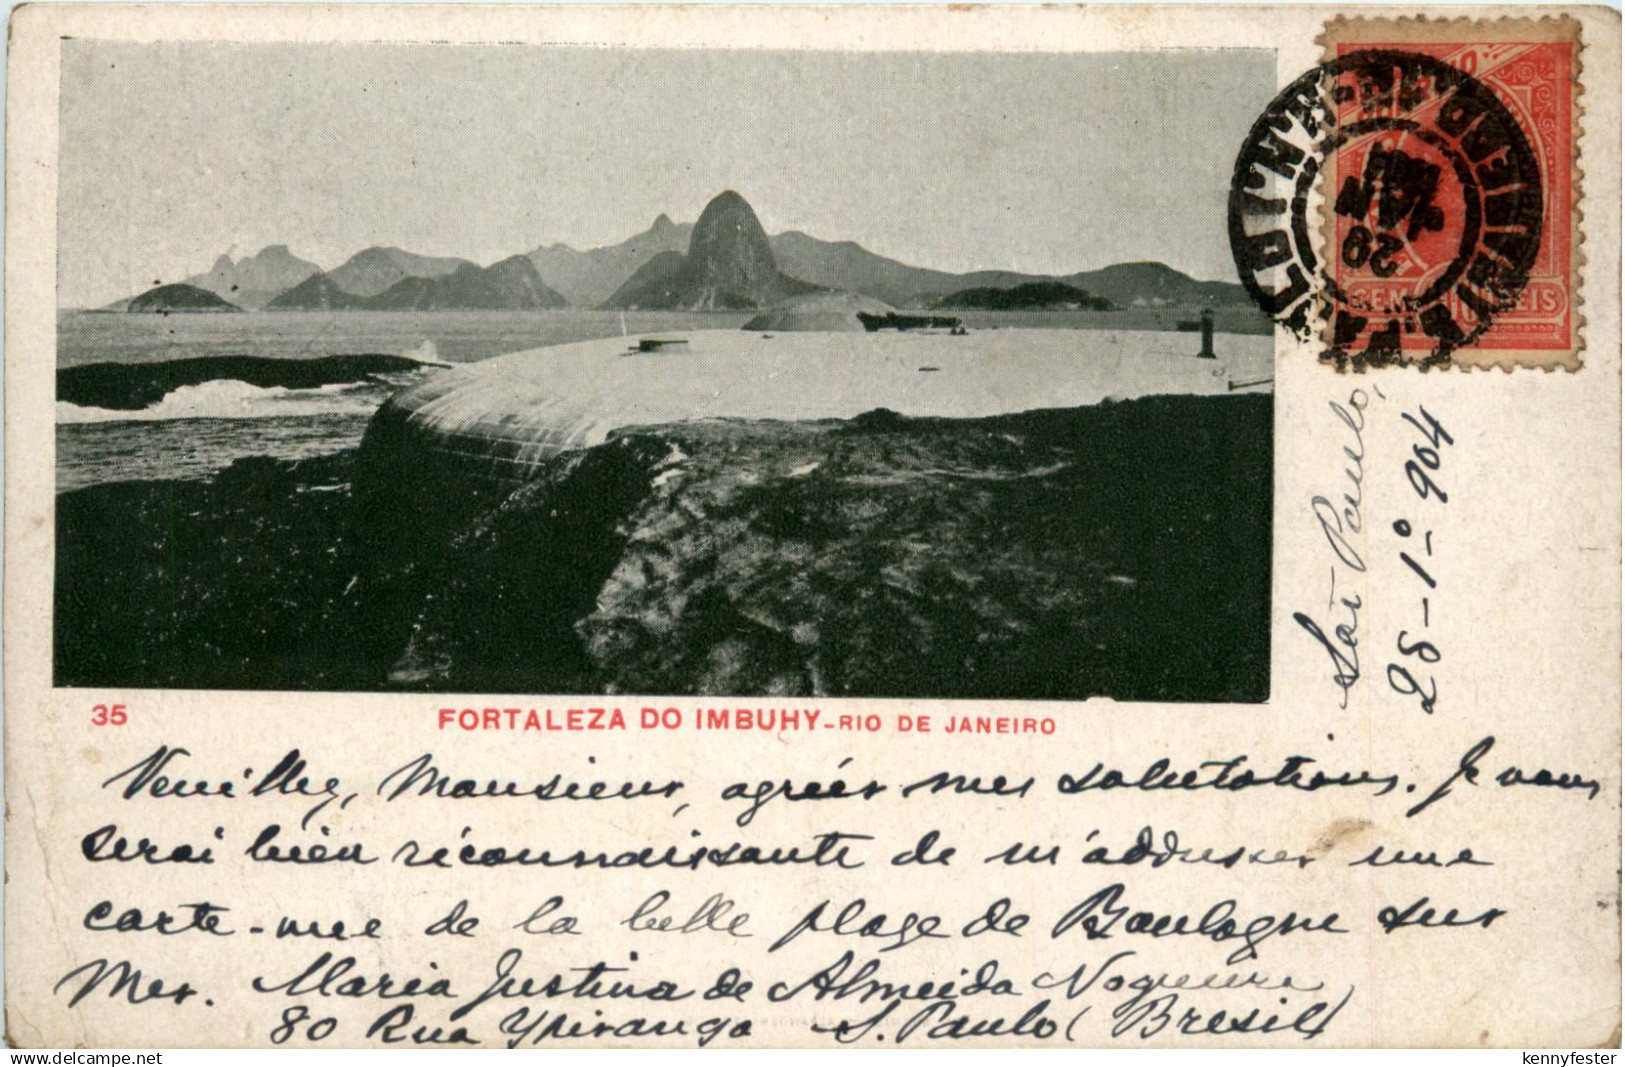 São Paulo,
28-1º-904
35
FORTALEZA DO IMBUHY-RIO DE JANEIRO
Veuillez, Monsieur, agréer mes salutations. Je vous
serai bien réconnaissante de m'addresser une
carte-vue de la belle plage de Boulogne sur
Mer. Maria Justina de Almeida Nogueira
80 Rua Ypiranga S. Paulo (Brésil)
kennyfester